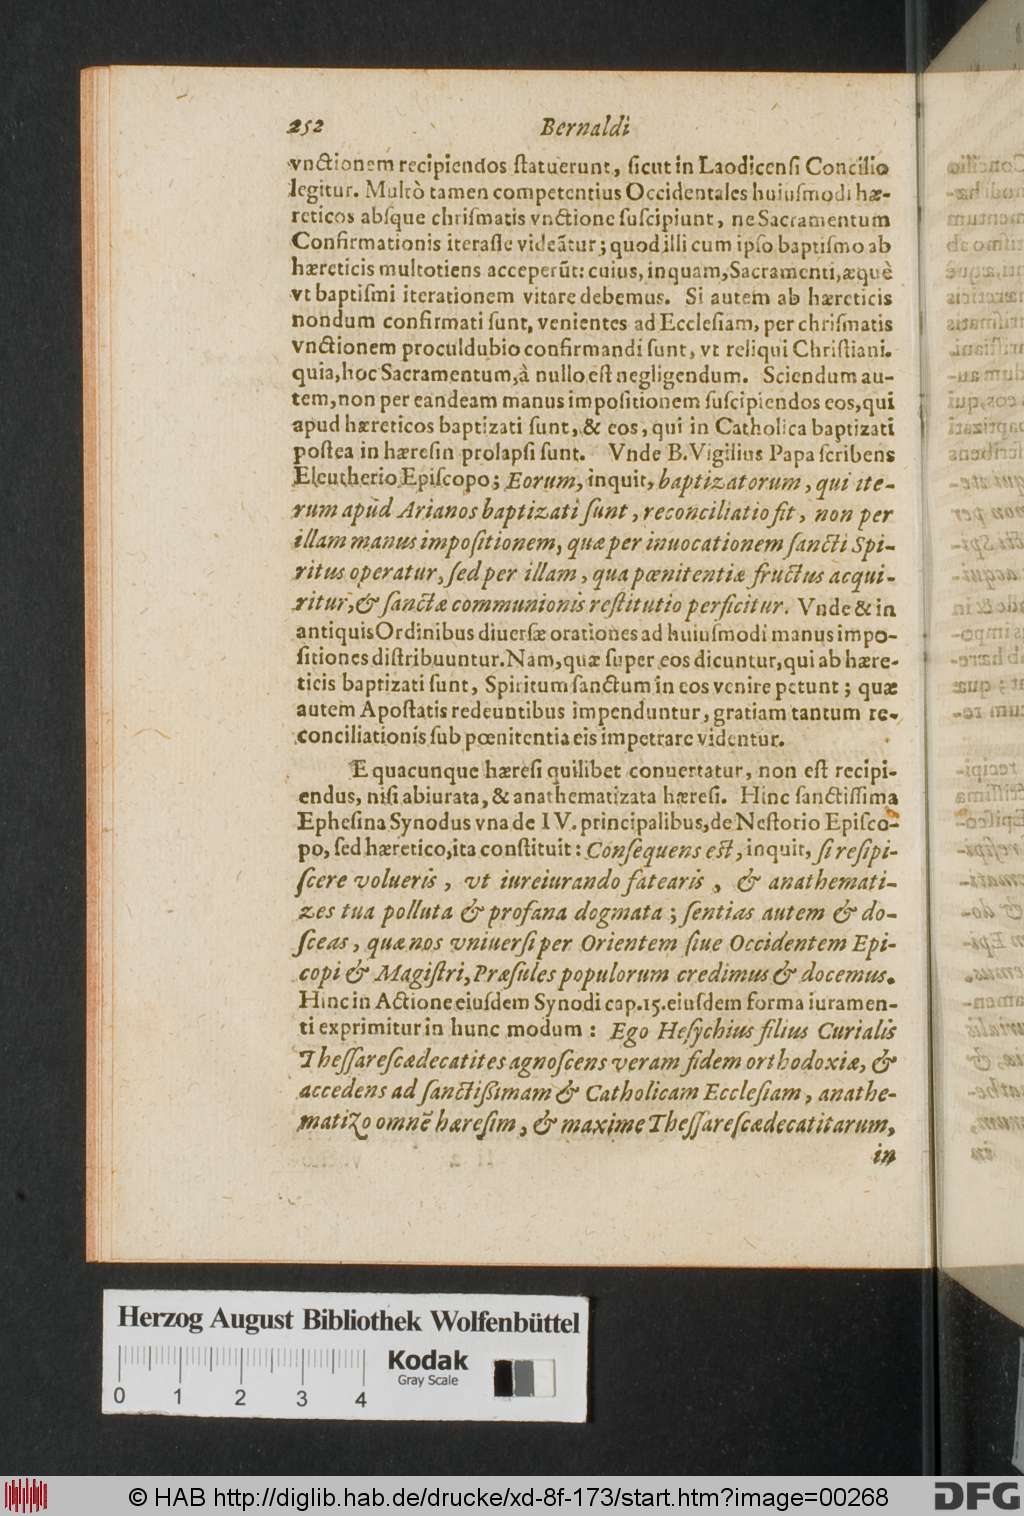 252 Bernaldi
vnctionem recipiendos ſtatuerunt, ſicut in Laodicenſi Concilio
legitur. Multò tamen competentius Occidentales huiuſmodi hæ-
reticos abſque chriſmatis vnctione ſuſcipiunt, ne Sacramentum
Confirmationis iteraſſe videātur; quod illi cum ipſo baptiſmo ab
hæreticis multotiens acceperūt: cuius, inquam, Sacramenti, æquè
vt baptiſmi iterationem vitare debemus. Si autem ab hæreticis
nondum confirmati ſunt, venientes ad Eccleſiam, per chriſmatis
vnctionem proculdubio confirmandi ſunt, vt reliqui Chriſtiani.
quia, hoc Sacramentum, à nullo eſt negligendum. Sciendum au-
tem, non per eandeam manus impoſitionem ſuſcipiendos eos, qui
apud hæreticos baptizati ſunt, & eos, qui in Catholica baptizati
poſtea in hæreſin prolapſi ſunt. Vnde B. Vigilius Papa ſcribens
Eleutherio Epiſcopo; Eorum, inquit, baptizatorum, qui ite-
rum apud Arianos baptizati ſunt, reconciliatio fit, non per
illam manus impoſitionem, quæ per inuocationem ſancti Spi-
ritus operatur, ſed per illam, qua pœnitentiæ fructus acqui-
ritur, & ſanctæ communionis reſtitutio perficitur. Vnde & in
antiquis Ordinibus diuerſæ orationes ad huiuſmodi manus impo-
ſitiones diſtribuuntur. Nam, quæ ſuper eos dicuntur, qui ab hære-
ticis baptizati ſunt, Spiritum ſanctum in eos venire petunt; quæ
autem Apoſtatis redeuntibus impenduntur, gratiam tantum re-
conciliationis ſub pœnitentia eis impetrare videntur.
E quacunque hæreſi quilibet conuertatur, non eſt recipi-
endus, niſi abiurata, & anathematizata hæreſi. Hinc ſanctiſſima
Epheſina Synodus vna de IV. principalibus, de Neſtorio Epiſco-
po, ſed hæretico, ita conſtituit: Conſequens eſt, inquit, ſi reſipi-
ſcere volueris, vt iureiurando fatearis, & anathemati-
zes tua polluta & profana dogmata; ſentias autem & do-
ſceas, quæ nos vniuerſi per Orientem ſiue Occidentem Epi-
copi & Magiſtri, Præſules populorum credimus & docemus.
Hinc in Actione eiuſdem Synodi cap. 15. eiuſdem forma iuramen-
ti exprimitur in hunc modum: Ego Heſychius filius Curialis
Theſſareſcædecatites agnoſcens veram fidem orthodoxiæ, &
accedens ad ſanctißimam & Catholicam Eccleſiam, anathe-
matizo omnē hæreſim, & maxime Theſſareſcædecatitarum,
in
Herzog August Bibliothek Wolfenbüttel
Kodak
Gray Scale
0 1 2 3 4
© HAB http://diglib.hab.de/drucke/xd-8f-173/start.htm?image=00268
DFG